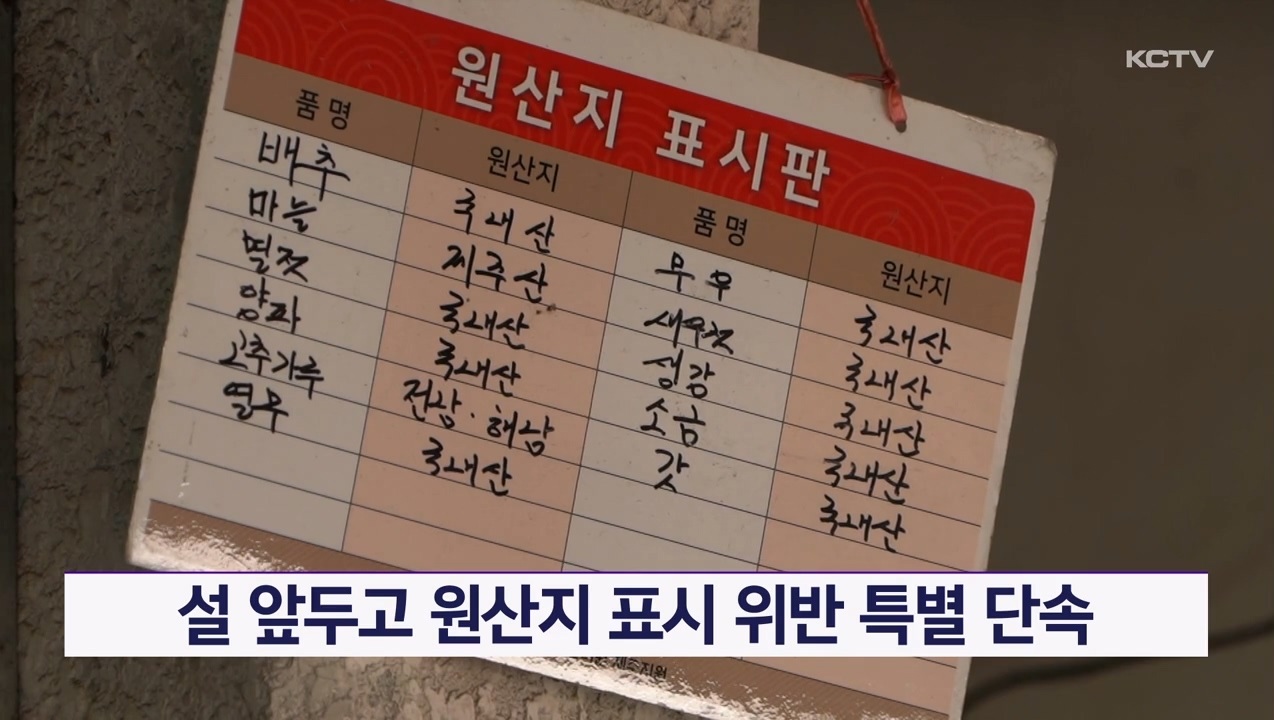 KCTV
원산지 표시판
품명 원산지 품명 원산지
배추 국내산 무우 국내산
마늘 제주산 새우젓 국내산
멸젓 국내산 생강 국내산
양파 국내산 소금 국내산
고추가루 전남·해남 갓 국내산
열무 국내산
설 앞두고 원산지 표시 위반 특별 단속
제주지원